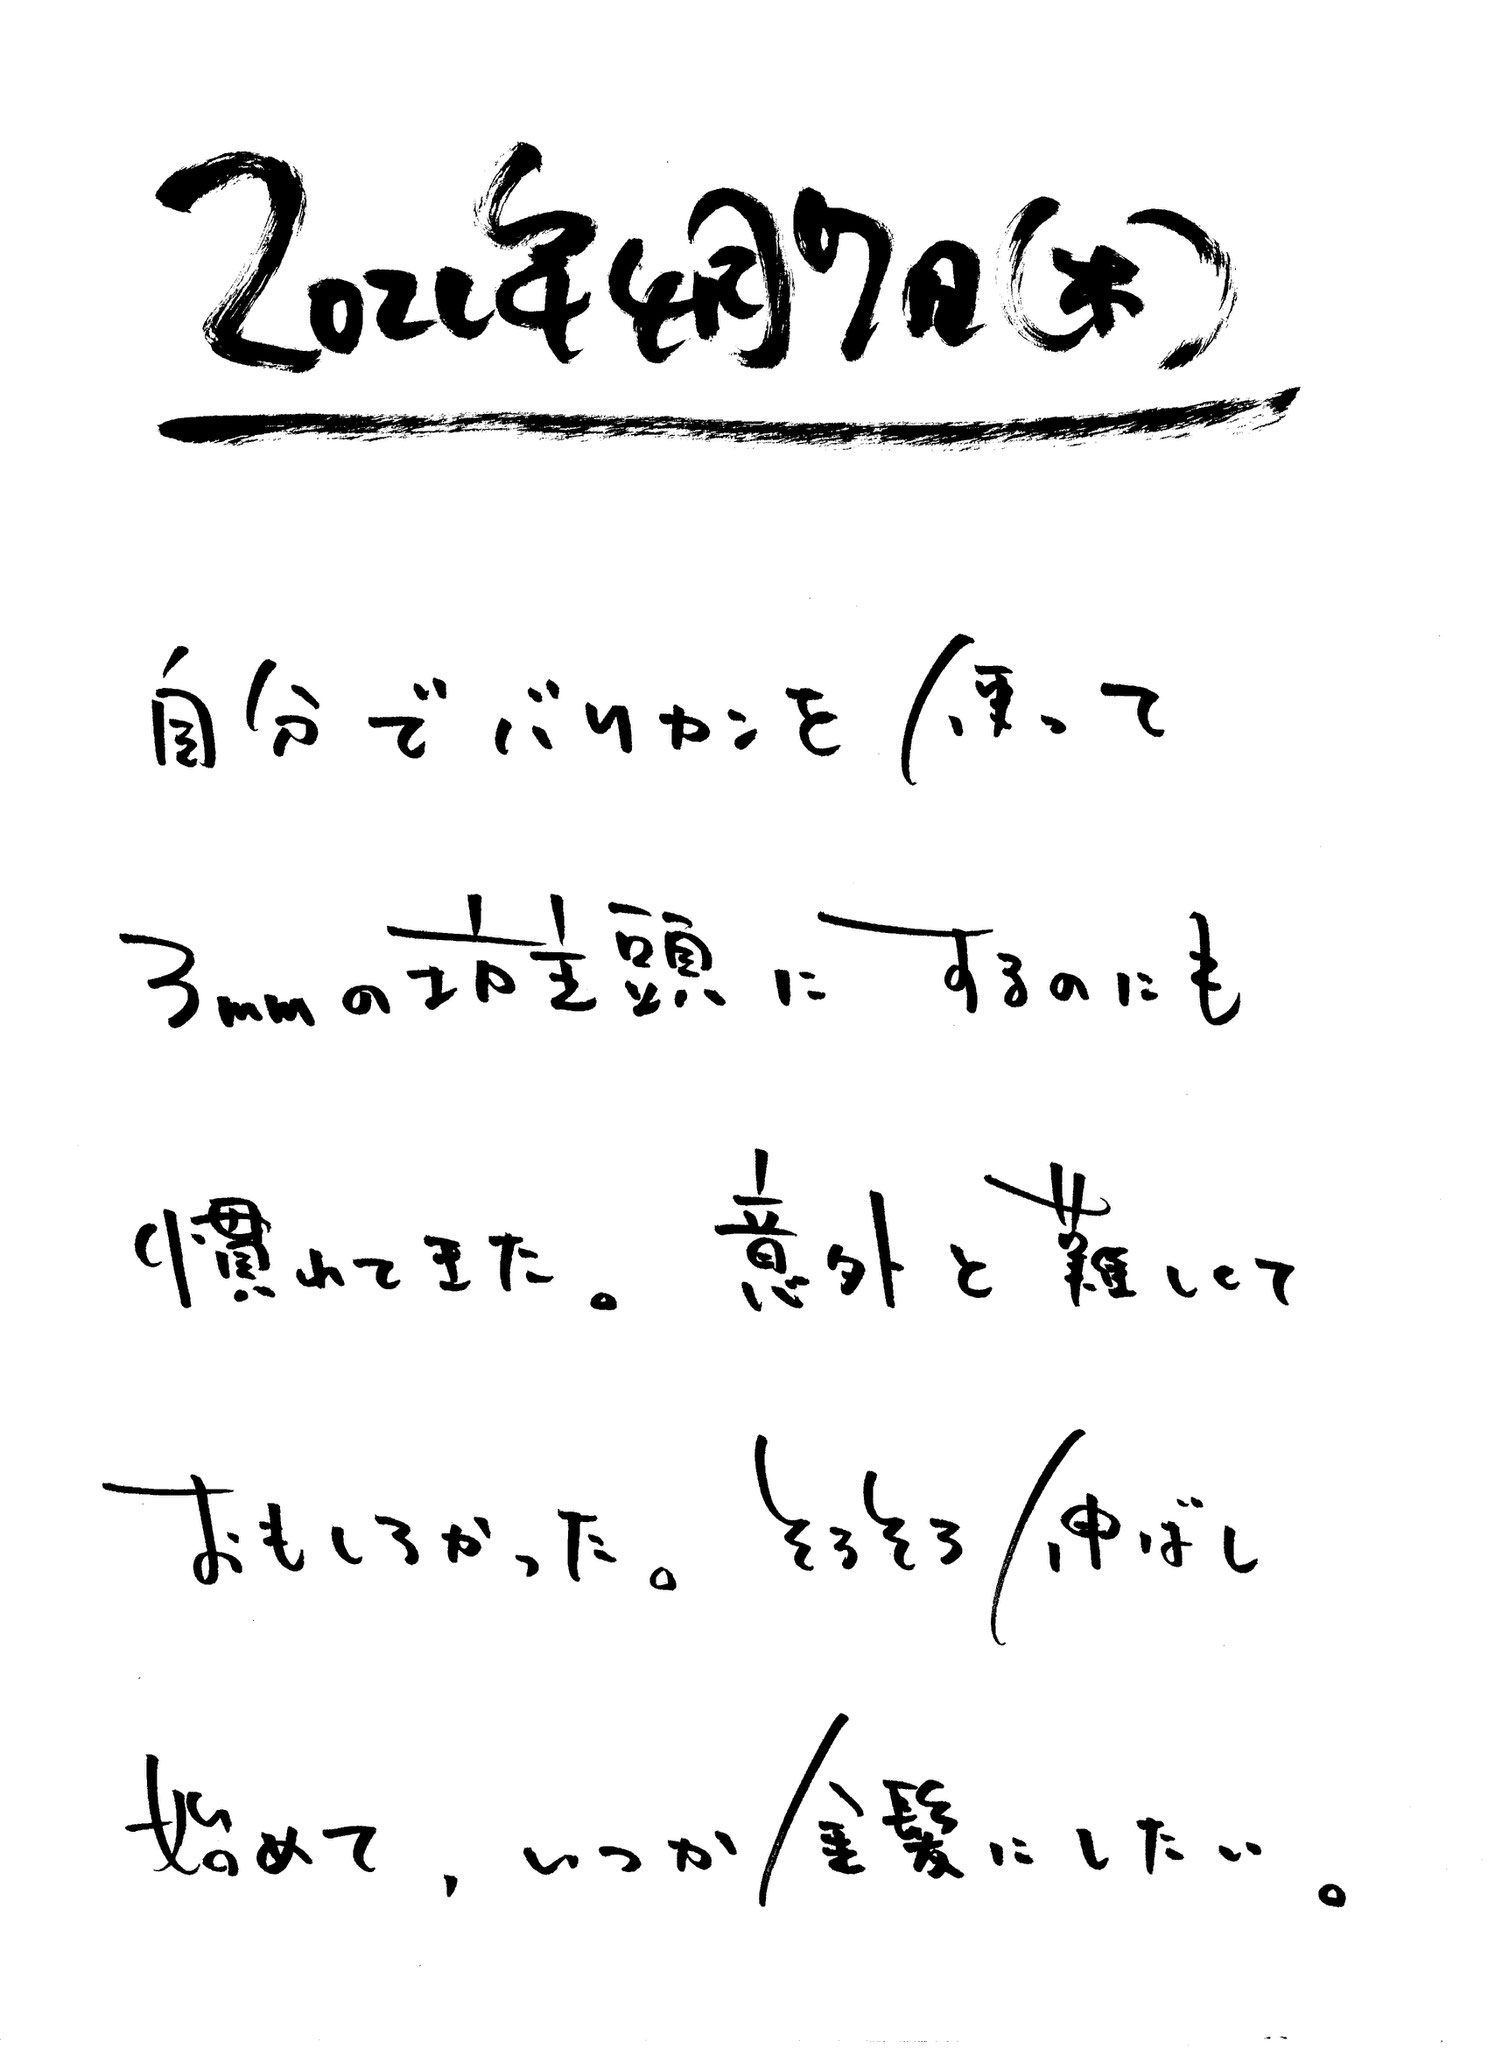 2022年4月7日(木)
自分でバリカンを使って
3mmの坊主頭にするのにも
慣れてきた。意外と難しくて
おもしろかった。そろそろ伸ばし
始めて、いつか金髪にしたい。